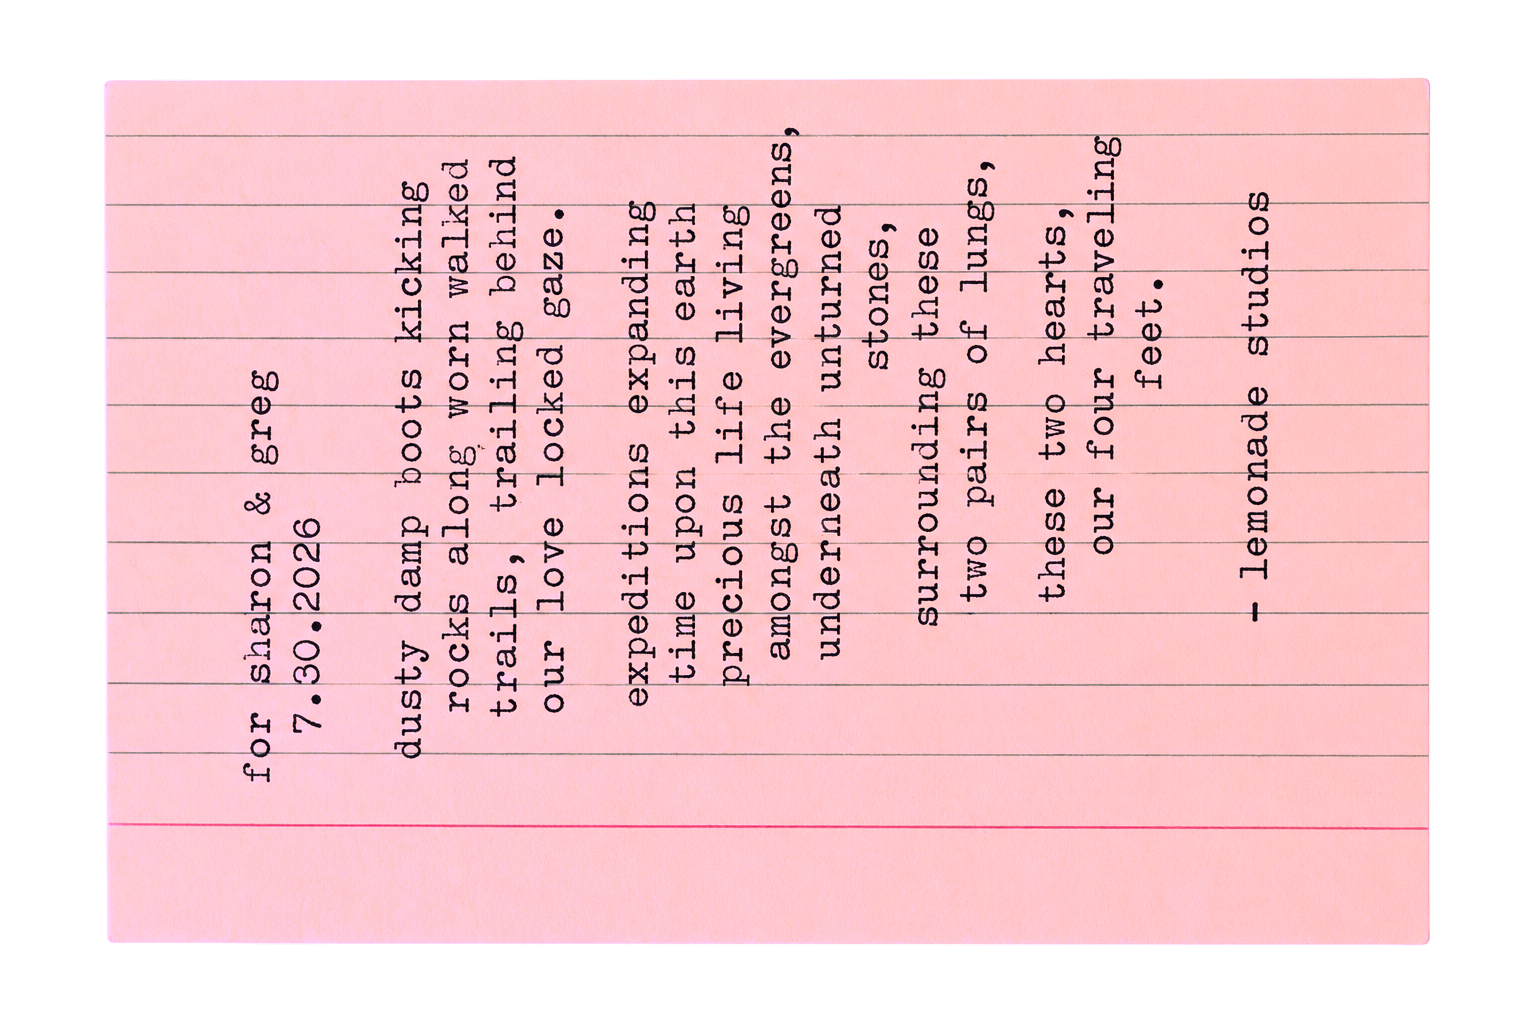 for sharon & greg
7.30.2026
dusty damp boots kicking
rocks along worn walked
trails, trailing behind
our love locked gaze.
expeditions expanding
time upon this earth
precious life living
amongst the evergreens,
underneath unturned
stones,
surrounding these
two pairs of lungs,
these two hearts,
our four traveling
feet.
- lemonade studios